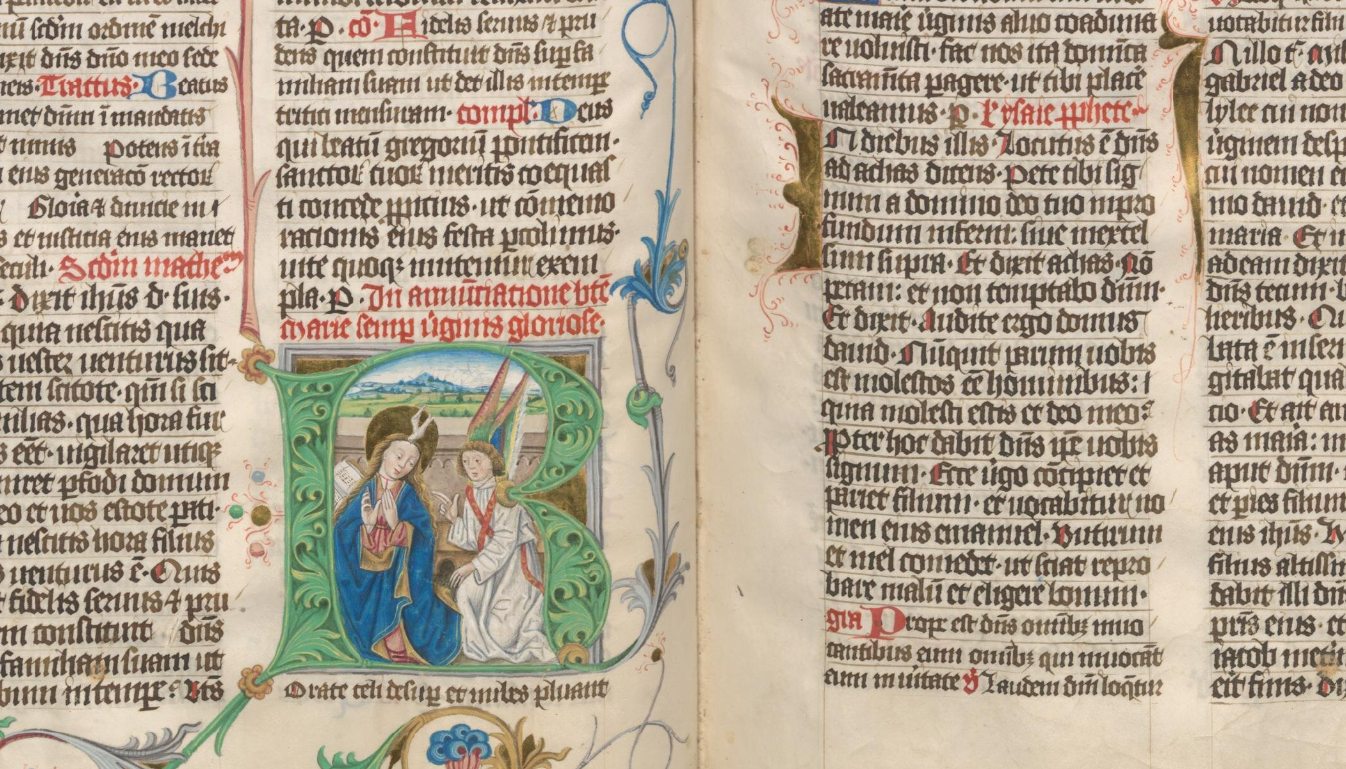 ū scdm ordinē melchi
dixit dn̄s dn̄o meo sede
meis· Tractus· Beatus
met dn̄m ī mandatis
nimis potens ī tra
eius generacō rectoꝝ
Gloīa ⁊ diuicie in
et iusticia eius manet
seculi· Scdm mathe
dixit ihūs d· suis·
quia nescitis qua
uester uenturus sit·
tem scitote· qm̄ si sci
milias· qua hora fur
eēt· uigilaret utiqꝫ
niret ꝑfodi domum
eo et uos estote ꝑati·
nescitis hora filius
uenturus ē· Quis
fidelis seruus ⁊ pru
constituit dn̄s
familiam suam ut
bum in tempꝛe· Vts
ta· P· cō· Fidelis seruus ⁊ pru
dens quem constituit dn̄s supꝛ fa
miliam suam ut det illis in tempꝛe
tritici mensuram· compl· Deus
qui beatū gregoriū pontificum·
sanctoꝝ tuoꝝ meritis coequas
ti concede ꝓpicius· ut cōmemo
racionis eius festa ꝑcolimus·
uite quoqꝫ imitemur exem
pla· P· In annūciatione btē
marie semp ūginis gloriose·
R
Orate celi desuꝑ et nubes pluant
ate marie ūginis aluo coaduna
re uoluisti· fac nos ita donūca
sacramēta ꝑagere· ut tibi placē
ualeamus· P· Lysaie ꝓphete·
IN diebus illis· Locutus ē dn̄s
ad achas dicens· Pete tibi sig
num a domino deo tuo in pro
fundum inferni: siue in excel
sum supra· Et dixit achas· Nō
petam: et non temptabo dn̄m·
Et dixit· Audite ergo domus
dauid· Nūquit parum uobis
est molestos eē hominibus: 
quia molesti estis et deo meo?
Ꝓpter hoc dabit dn̄s ipē uobis
signum· Ecce ūgo cōcipiet et
pariet filium· et uocabitur no
men eius emanuel· Butirum
et mel comedet· ut sciat repro
bare malū et eligere bonum·
gra Prope est dn̄s omībꝫ inuo
cantibus eum omībꝫ qui inuocāt
eum in ūitate V̄ Laudem dn̄i loq̄tur
uocabitur filiu
In illo t̄·
gabriel a deo
lylee cui nom
ūginem desp
cui nomen e
mo dauid· et
maria· Et in
ad eam dixi
dn̄s tecum· b
lieribus· Qu
bata ē in ser
gitabat qua
cio· Et ait an
as maīa: in
aput dm̄·
et paries filium
eius ihūs·
filius altissi
dabit illi dn̄
pr̄is eius· et
iacob in et
erit finis·